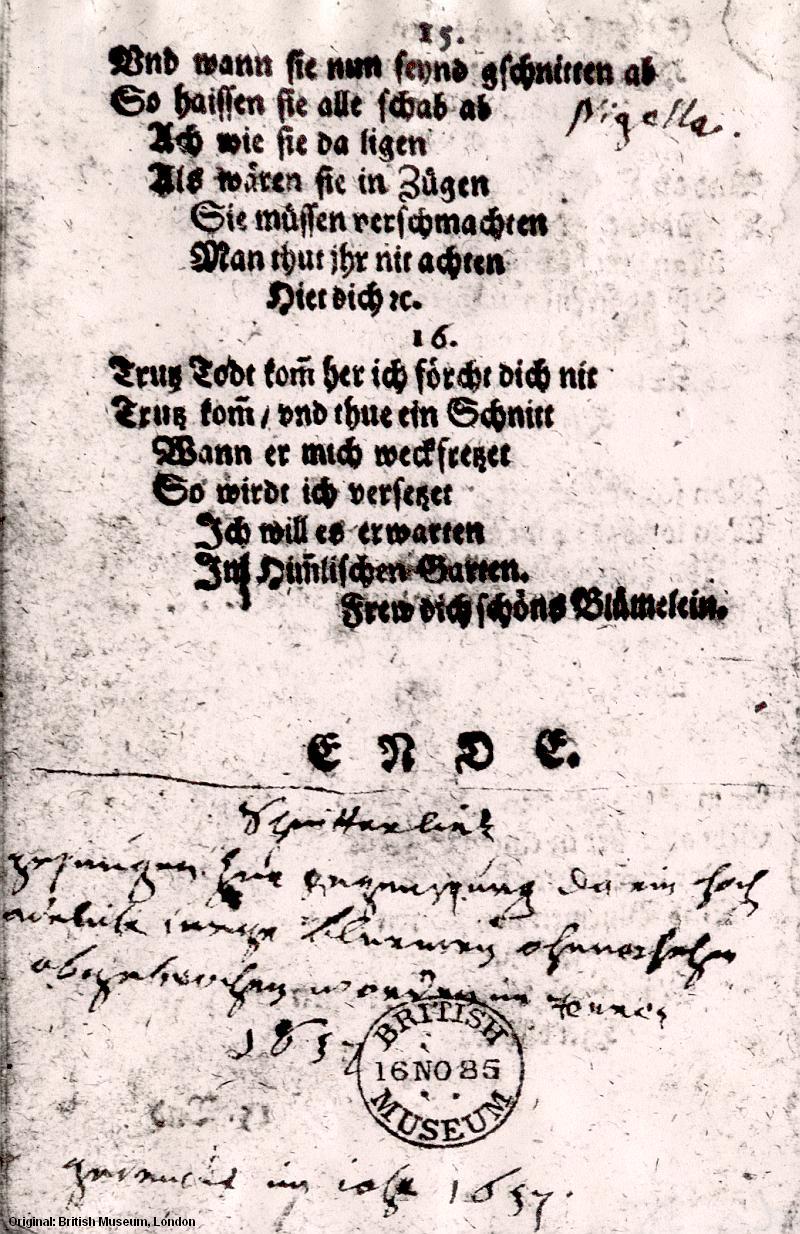 15.
Vnd wann sie nun seynd gschnitten ab
So haissen sie alle schab ab
Nigella.
Ach wie sie da ligen
Als wären sie in Zügen
Sie müssen verschmachten
Man thut jhr nit achten
Hiet dich ꝛc.
16.
Trutz Todt kom̃ her ich förcht dich nit
Trutz kom̃ / vnd thue ein Schnitt
Wann er mich weckfretzet
So wirdt ich versetzet
Ich will es erwarten
Ins Him̃lischen Garten.
Frew dich schöns Blümelein.
ENDE.
Schnitterliet
gesungen zur da ein hoch
adeliche junge bluemen ohnversehn
abgebrochen worden im
1637
BRITISH
16 NO 85
MUSEUM
gedruckt im jahr 1637.
Original: British Museum, London